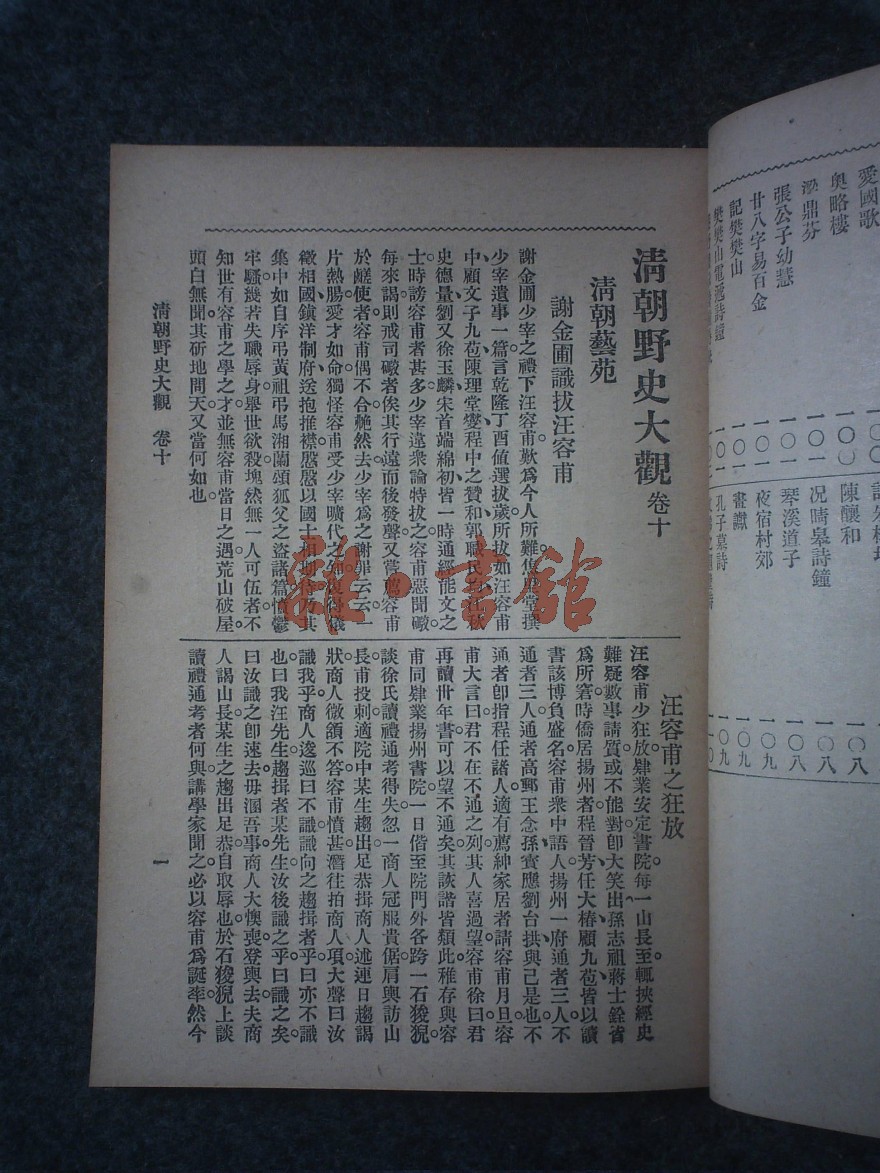 清朝野史大觀 卷十
清朝藝苑
謝金圃識拔汪容甫
謝金圃少宰之禮下汪容甫歎爲今人所難焦 堂撰
少宰遺事一篇言乾隆丁酉値選拔歲所拔如汪容甫
中顧文子九苞陳理堂燮程中之贊和郭職民 江秋
史德量劉又徐玉麟宋首端綿初皆一時通經能文之
士時謗容甫者甚多少宰違衆論特拔之容甫惡聞礮
每來謁則戒司礮者俟其行遠而後發聲又嘗薦容甫
於鹺使者容甫偶不合艴然去少宰爲之謝罪云云一
片熱腸愛才如命獨怪容甫受少宰曠代之知復得儀
徵相國鎭洋制府送抱推襟慇慇以國士相 及其
集中如自序弔黃祖弔馬湘蘭頌狐父之盜諸篇憤鬱
牢騷幾若失職辱身舉世欲殺塊然無一人可伍者不
知世有容甫之學之才並無容甫當日之遇荒山破屋
頭白無聞其斫地問天又當何如也
汪容甫之狂放
汪容甫少狂放肄業安定書院每一山長至輒挾經史
難疑數事請質或不能對卽大笑出孫志祖蔣士銓省
爲所窘時僑居揚州者程晉芳任大椿顧九苞皆以讀
書該博負盛名容甫衆中語人揚州一府通者三人不
通者三人通者高郵王念孫寶應劉台拱與己是也不
通者卽指程任諸人適有薦紳家居者請容甫月旦容
甫大言曰君不在不通之列其人喜過望容甫徐曰君
再讀卅年書可以望不通矣其詼諧皆類此稚存與容
甫同肄業揚州書院一日偕至院門外各跨一石狻猊
談徐氏讀禮通考得失忽一商人冠服貴倨肩輿訪山
長甫投刺適院中某生趨出足恭揖商人述連日趨謁
狀商人微頷不答容甫憤甚潛往拍商人項大聲曰汝
識我乎商人逡巡曰不識識向之趨揖者乎曰亦不識
也曰我汪先生趨揖者某先生汝後識之乎曰識之矣
曰汝識之卽速去毋溷吾事商人大懊喪登輿去夫商
人謁山長某生之趨出足恭自取辱也於石狻猊上談
讀禮通考者何與講學家聞之必以容甫爲誕率然今
清朝野史大觀 卷十
一
愛國歌
奧略樓
梁鼎芬
張公子幼慧
廿八字易百金
記樊樊山
陳釀和
況晴皋詩鐘
琴溪道子
夜宿村郊
書讞
孔子墓詩